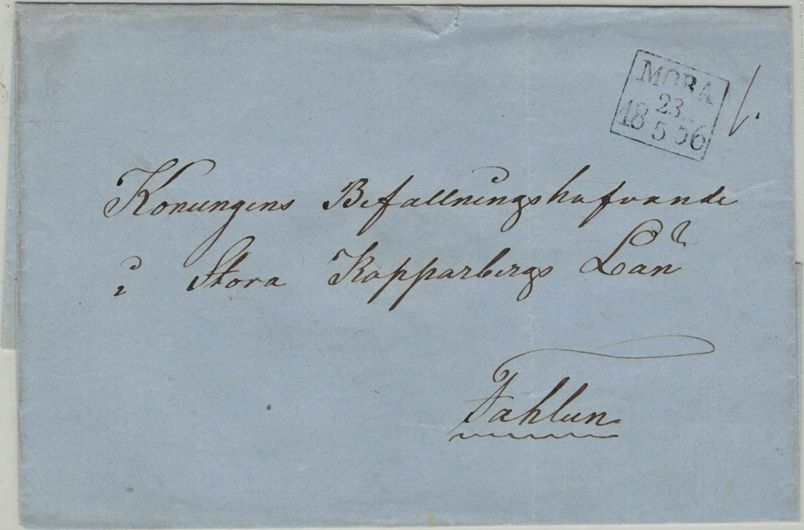 MORA
23
18 5 56
Konungens Befallningshafvande
i Stora Kopparbergs Län
Fahlun